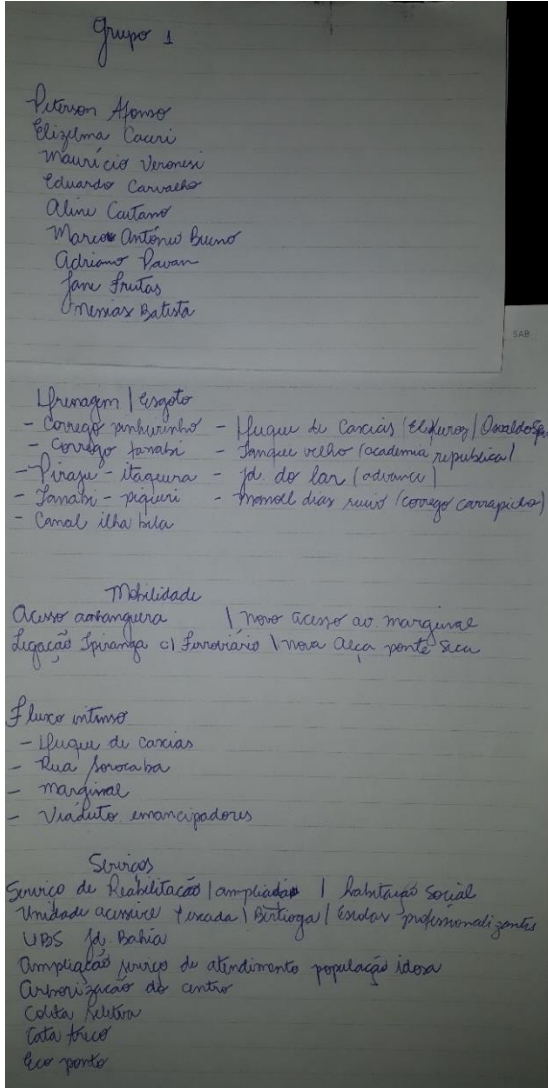 Grupo 1
Peterson Afonso
Elizelma Caceri
Maurício Veronesi
Eduardo Carvalho
Aline Caitano
Marco Antônio Bueno
Adriano Pavan
Jane Freitas
Messias Batista
SAB
Drenagem | Esgoto
- Corrego pinheirinho - Duque de Caxias / Osvaldo
- Corrego Tanabi - Tanque velho (academia republica)
- Piraju - itaquera - Jd. do lar (advance)
- Tanabi - piqueri - manoel dias ruivo (corrego carrapicho)
- Canal ilha bela
Mobilidade
Acesso anhanguera | novo acesso ao marginal
Ligação Ipiranga c/ Ferroviário \ nova alça ponte Seca
Fluxo intenso
- Duque de caxias
- Rua Sorocaba
- marginal
- Viaduto emancipadores
Serviços
Serviço de Reabilitação | ampliada | habitação Social
Unidade acessivel | Bertioga | Escolas profissionalizantes
UBS Jd. Bahia
Ampliação serviço de atendimento população idosa
Arborização do centro
Coleta Seletiva
Cata treco
Eco ponto